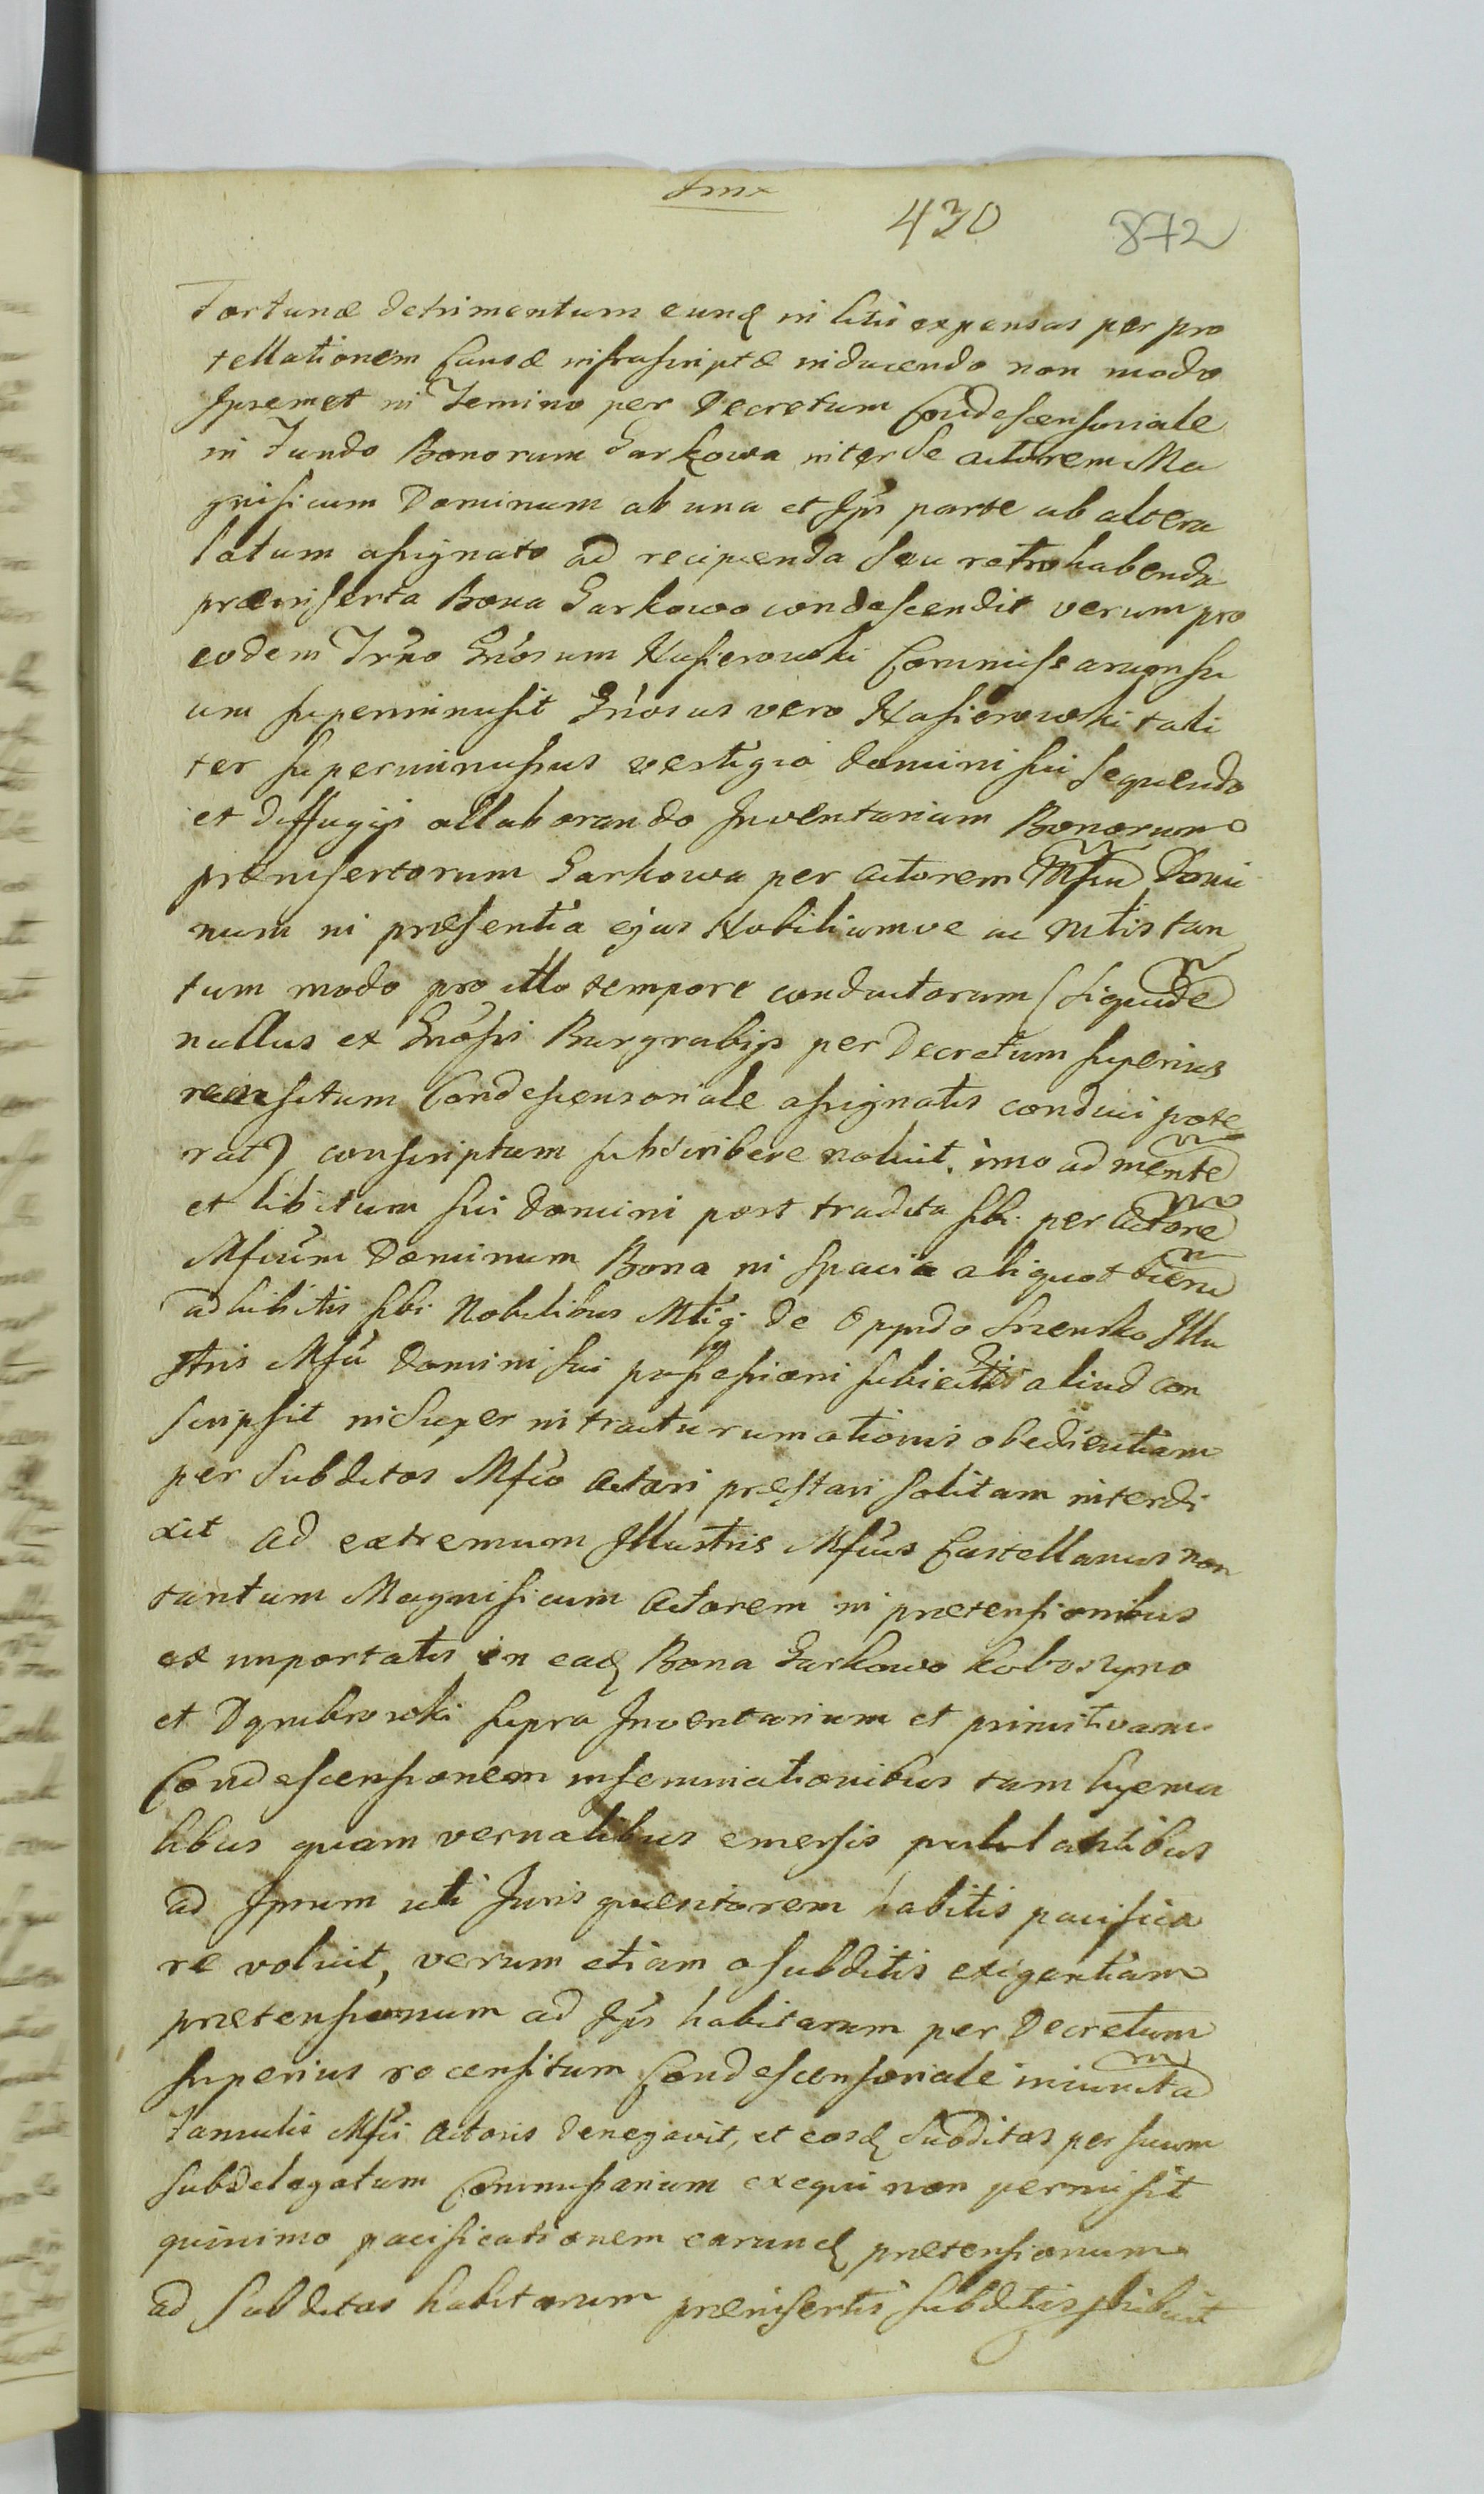 430 872
Fortunæ detrimentum eundq in litis expensas per pro
tellationem Causæ infrascriptæ inducendo non modo
Ipsemet in Termino per Decretum Condescensoriale
in Fundo Bonorum Garkowa inter se actorem Ma
gnificum Dominum ab una et Ips parte ab altera
latum assignato ad recipienda seu retrohabenda
præinserta Bona Garkowo condescendit verum pro
eodem Trno Gnosum Kasierowski Commissarium su
um superimmisit Gnosus vero Kasierowski tali
ter superimmissus vestigia domini sui sequendo
et diffugijs allaborando Inventarium Bonorum
præinsertorum Garkowa per actorem Mficu Domi
num in præsentia ejus Nobiliumve ac Mltis tan
tum modo pro illo tempore conductorum (siquide
nullus ex Gnosis Burgrabijs per Decretum superius
recensitum Condescensoriale assignatis conduci pote
rat) conscriptum subscribere noluit, imo ad mente
et libitum sui Domini post tradita sibi per Actore
Mficum Dominum Bona in spacio aliquot
adhibitis sibi Nobilibus Mltiq de Oppido Srensko Illu
stris Mfci Domini sui possessioni subiectis aliud con
scripsit insuper in tractu rumationis obedientiam
per Subditos Mfco Actori præstari solitam interdi
xit ad extremum Illustris Mficus Castellanus non
tantum Magnificum Actorem in prætensionibus
ex importatis in eadq Bona Garkowo Koboszyno
et Dgmbrowski supra Inventarium et primitivam
Condescensionem inseminationibus tam hyema
libus quam vernalibus emersis pululantibus
ad Ipsum uti Juris quæsitorem habitis pacifica
re voluit, verum etiam a subditis exigentiam
prætensionum ad Ips habitarum per Decretum
superius recensitum Condescensoriale iniuncta
Famulis Mfci Actoris denegavit, et eosdq Subditos per suum
subdelegatum Commissarium exequi non permisit
quinimo pacificationem earundq prætensionum
ad Subditos habitarum præinsertis subditis